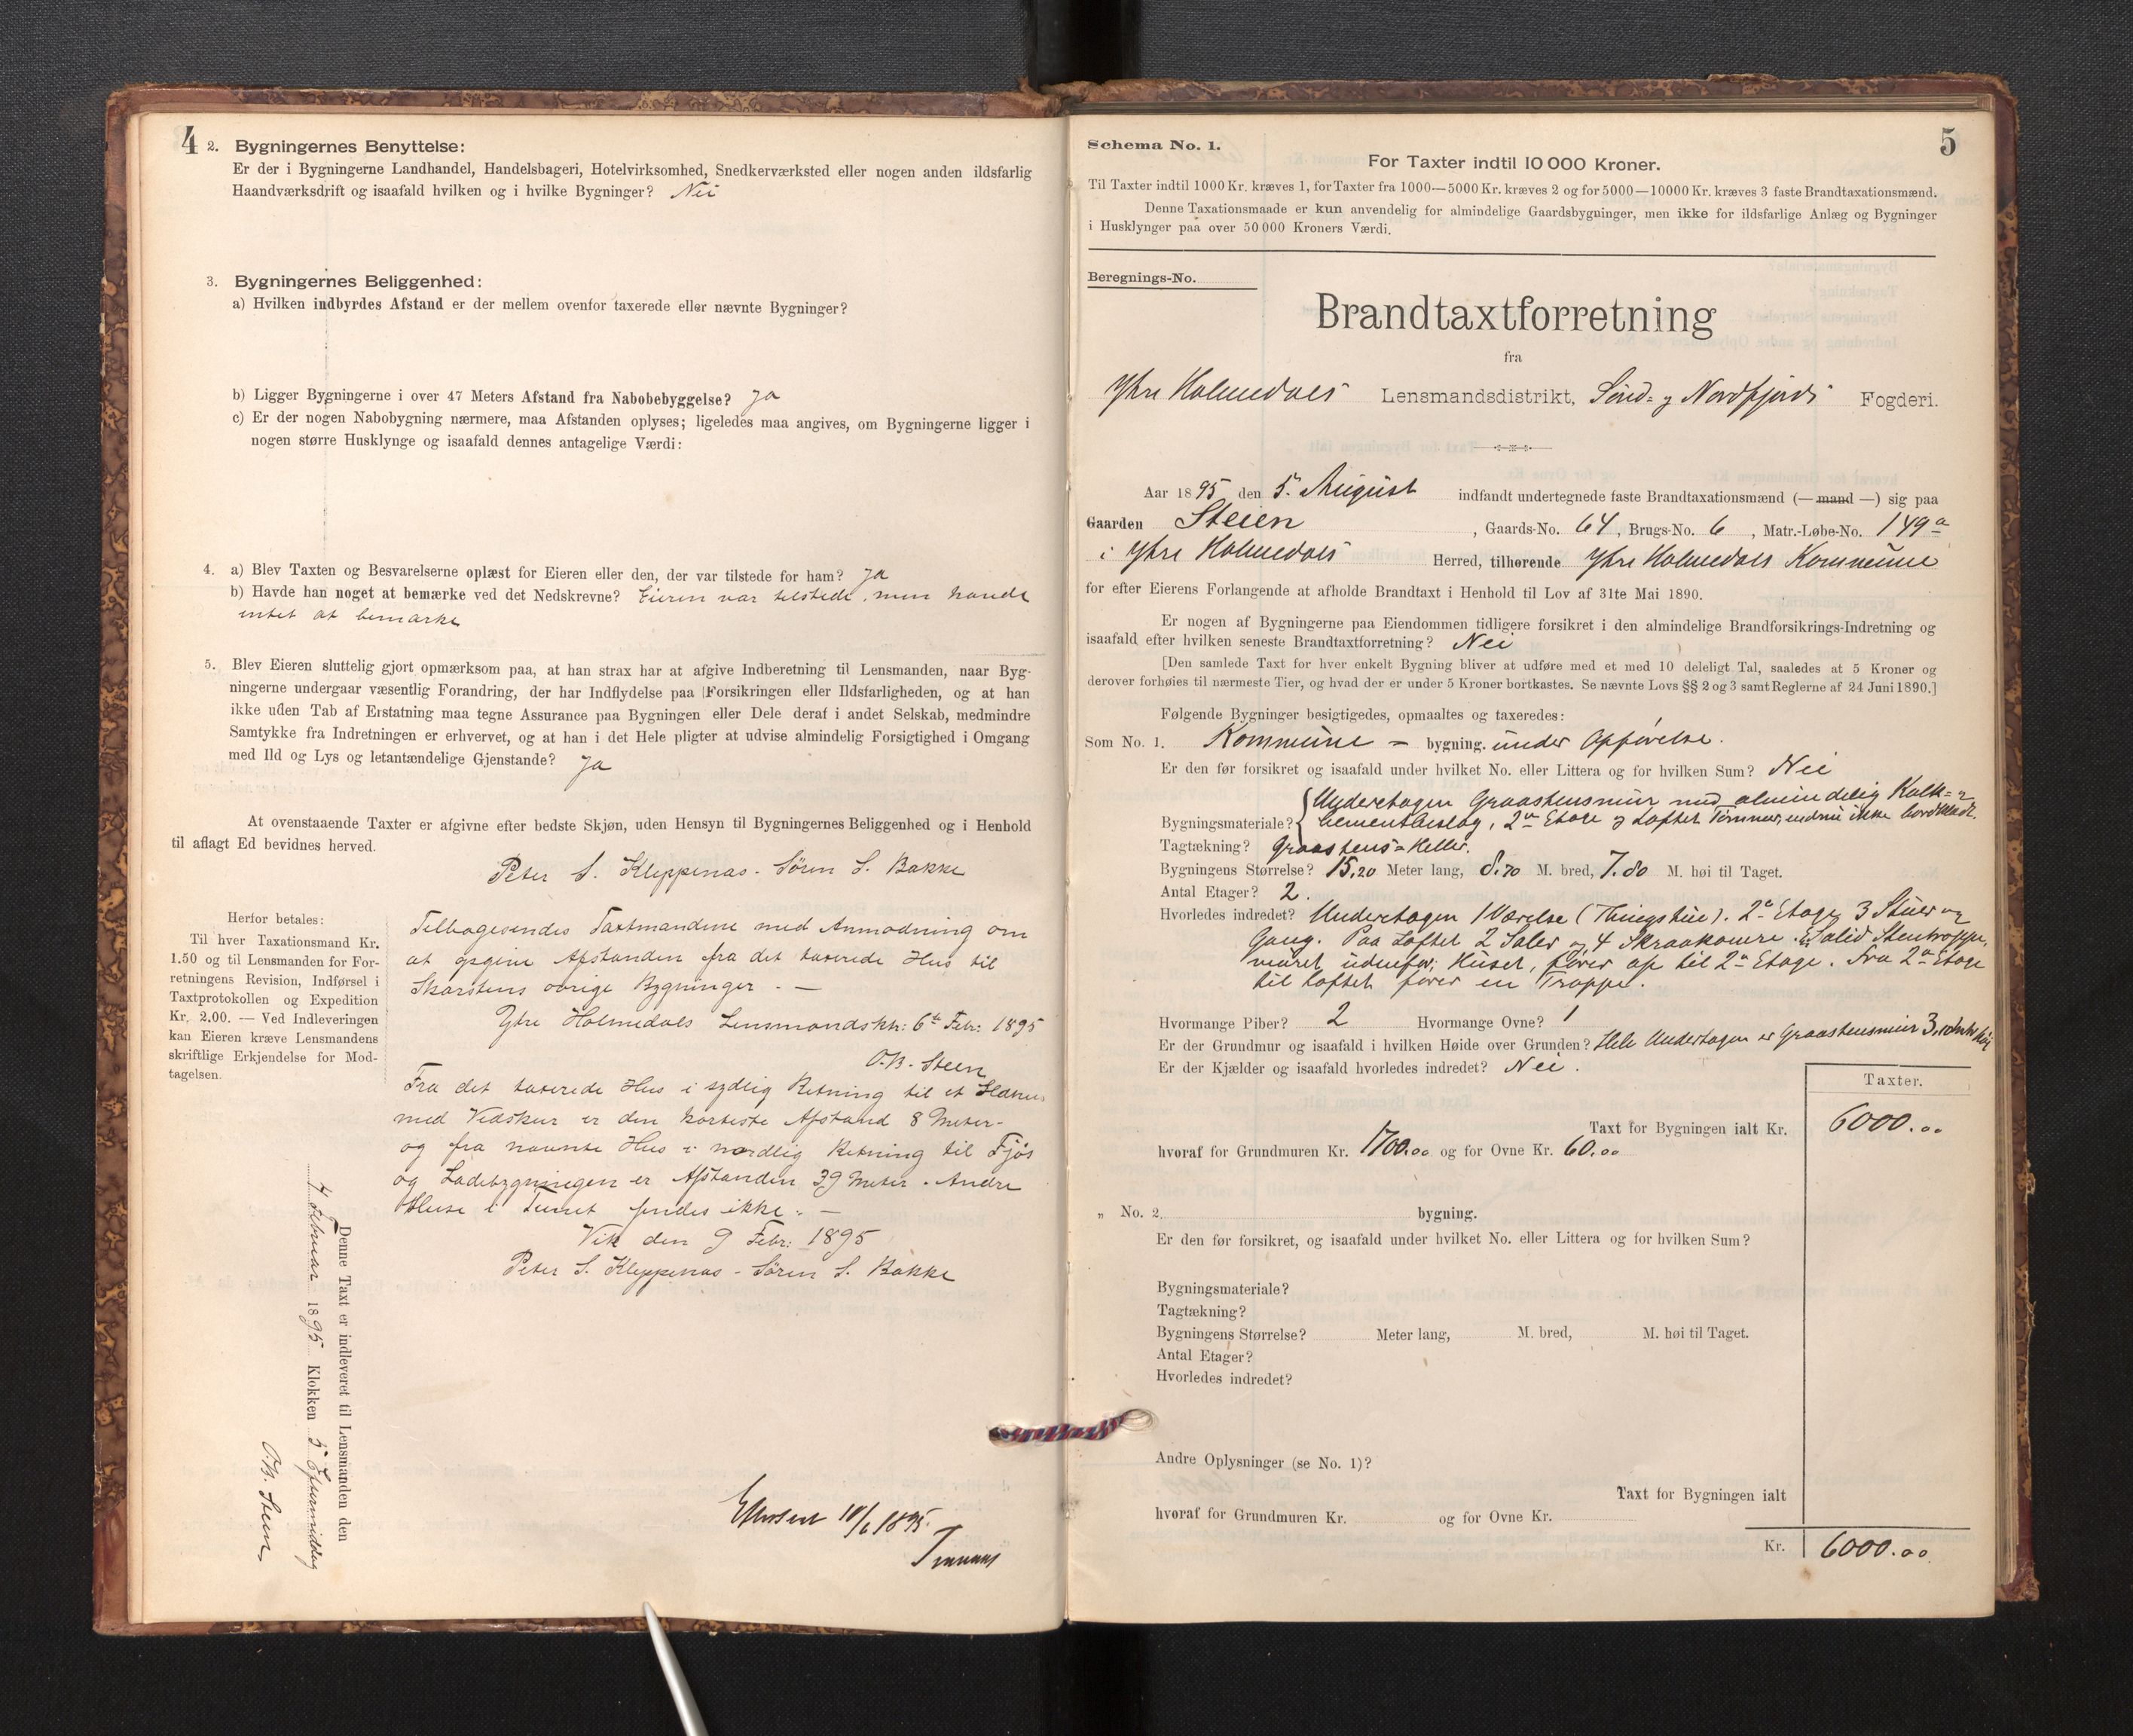 4
2. Bygningernes Benyttelse:
Er der i Bygningerne Landhandel, Handelsbageri, Hotelvirksomhed, Snedkerværksted eller nogen anden ildsfarlig
Haandværksdrift og isaafald hvilken og i hvilke Bygninger? Nei
3. Bygningernes Beliggenhed:
a) Hvilken indbyrdes Afstand er der mellem ovenfor taxerede eller nævnte Bygninger?
b) Ligger Bygningerne i over 47 Meters Afstand fra Nabobebyggelse? Ja
c) Er der nogen Nabobygning nærmere, maa Afstanden oplyses; ligeledes maa angives, om Bygningerne ligger i
nogen større Husklynge og isaafald dennes antagelige Værdi:
4. a) Blev Taxten og Besvarelserne oplæst for Eieren eller den, der var tilstede for ham? Ja
b) Havde han noget at bemærke ved det Nedskrevne? Eieren var tilstede, men havde
intet at bemærke
5. Blev Eieren sluttelig gjort opmærksom paa, at han strax har at afgive Indberetning til Lensmanden, naar Byg-
ningerne undergaar væsentlig Forandring, der har Indflydelse paa Forsikringen eller Ildsfarligheden, og at han
ikke uden Tab af Erstatning maa tegne Assurance paa Bygningen eller Dele deraf i andet Selskab, medmindre
Samtykke fra Indretningen er erhvervet, og at han i det Hele pligter at udvise almindelig Forsigtighed i Omgang
med Ild og Lys og letantændelige Gjenstande? Ja
At ovenstaaende Taxter er afgivne efter bedste Skjøn, uden Hensyn til Bygningernes Beliggenhed og i Henhold
til aflagt Ed bevidnes herved.
Peter S. Kleppenas. Søren S. Bakke
Herfor betales:
Til hver Taxationsmand Kr.
1.50 og til Lensmanden for For-
retningens Revision, Indførsel i
Taxtprotokollen og Expedition
Kr. 2.00. — Ved Indleveringen
kan Eieren kræve Lensmandens
skriftlige Erkjendelse for Mod-
tagelsen.
Tilbagesendes Taxtmændene med Anmodning om
at opgive Afstanden fra det taxerede Hus til
Skarstens øvrige Bygninger. —
Ytre Holmedals Lensmandsktr: 6te Febr: 1895
O.B. Steen
Fra det taxerede Hus i sydlig Retning til et Ildhus
med Vedskur er den korteste Afstand 8 Meter-
og fra nævnte Hus i nordlig Retning til Fjøs
og Ladebygningen er Afstanden 39 Meter. Andre
Huse i Tunet findes ikke. —
Vik den 9 Febr: 1895
Peter S. Kleppenas - Søren S. Bakke
Denne Taxt er indleveret til Lensmanden den
4 Februar 1895 Klokken 5 Eftermiddag
O.B. Steen
10/6 1895.
5
Schema No. 1.
For Taxter indtil 10 000 Kroner.
Til Taxter indtil 1000 Kr. kræves 1, for Taxter fra 1000—5000 Kr. kræves 2 og for 5000—10000 Kr. kræves 3 faste Brandtaxationsmænd.
Denne Taxationsmaade er kun anvendelig for almindelige Gaardsbygninger, men ikke for ildsfarlige Anlæg og Bygninger
i Husklynger paa over 50 000 Kroners Værdi.
Beregnings-No.
Brandtaxtforretning
fra
Ytre Holmedals Lensmandsdistrikt, Sønd- og Nordfjords Fogderi.
Aar 1895 den 5. August indfandt undertegnede faste Brandtaxationsmænd (— mand —) sig paa
Gaarden Steien, Gaards-No. 64, Brugs-No. 6, Matr.-Løbe-No. 149a
i Ytre Holmedals Herred, tilhørende Ytre Holmedals Kommune
for efter Eierens Forlangende at afholde Brandtaxt i Henhold til Lov af 31te Mai 1890.
Er nogen af Bygningerne paa Eiendommen tidligere forsikret i den almindelige Brandforsikrings-Indretning og
isaafald efter hvilken seneste Brandtaxtforretning? Nei
[Den samlede Taxt for hver enkelt Bygning bliver at udføre med et med 10 deleligt Tal, saaledes at 5 Kroner og
derover forhøies til nærmeste Tier, og hvad der er under 5 Kroner bortkastes. Se nævnte Lovs §§ 2 og 3 samt Reglerne af 24 Juni 1890.]
Følgende Bygninger besigtigedes, opmaaltes og taxeredes:
Som No. 1. Kommune - bygning. under Opførelse.
Er den før forsikret og isaafald under hvilket No. eller Littera og for hvilken Sum? Nei
Bygningsmateriale? Underetagen Graastensmur med almindelig Kalk- og
Cementbeslag, 2den Etage og Loftet Tømmer, endnu ikke bordklædt.
Tagtækning? Graastens-Heller.
Bygningens Størrelse? 15,20 Meter lang, 8.70 M. bred, 7.80 M. høi til Taget.
Antal Etager? 2.
Hvorledes indredet? Underetagen 1 Værelse (Thingstue). 2den Etage 3 Stuer og
Gang. Paa Loftet 2 Saler og 4 Skraakamre. En solid Stentrappe,
muret udenfor Huset, fører op til 2den Etage. Fra 2den Etage
til Loftet fører en Trappe.
Hvormange Piber? 2 Hvormange Ovne? 1
Er der Grundmur og isaafald i hvilken Høide over Grunden? Hele Underetagen er Graastensmur 3,10 høi
Er der Kjælder og isaafald hvorledes indredet? Nei.
Taxter.
Taxt for Bygningen ialt Kr. 6000.00
hvoraf for Grundmuren Kr. 1700.00 og for Ovne Kr. 60.00
„ No. 2 bygning.
Er den før forsikret, og isaafald under hvilket No. eller Littera og for hvilken Sum?
Bygningsmateriale?
Tagtækning?
Bygningens Størrelse? Meter lang, M. bred, M. høi til Taget.
Antal Etager?
Hvorledes indredet?
Andre Oplysninger (se No. 1)?
Taxt for Bygningen ialt
hvoraf for Grundmuren Kr. og for Ovne Kr.
Kr. 6000.00